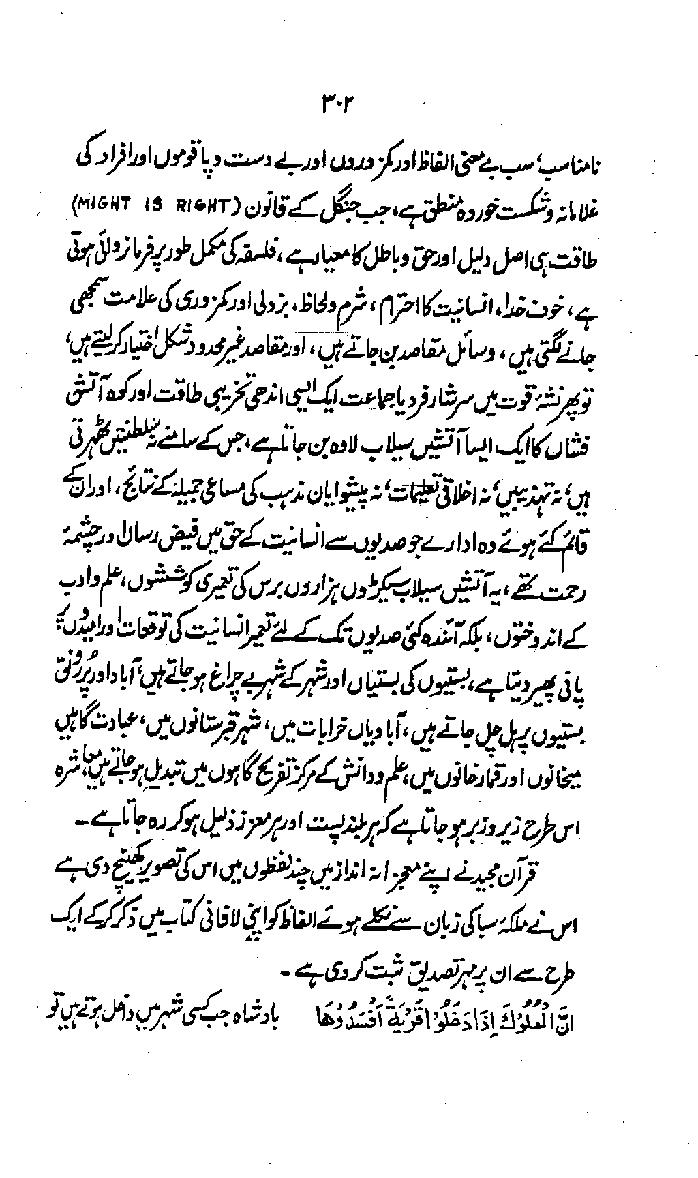 ۳۰۲
نامناسب، سب بے معنی الفاظ اور کمزوروں اور بے دست و پا قوموں اور افراد کی
غلامانہ و شکست خوردہ منطق ہے، جب جنگل کے قانون (MIGHT IS RIGHT)
طاقت ہی اصل دلیل اور حق و باطل کا معیار ہے، فلسفہ کی مکمل طور پر فرمانروائی ہوتی
ہے، خوف خدا، انسانیت کا احترام، شرم و لحاظ، بزدلی اور کمزوری کی علامت سمجھی
جانے لگتی ہیں، وسائل مقاصد بن جاتے ہیں، اور مقاصد غیر محدود شکل اختیار کر لیتے ہیں،
تو پھر نشۂ قوت میں سرشار فرد یا جماعت ایک ایسی اندھی تخریبی طاقت اور کوہ آتش
فشاں کا ایک ایسا آتشیں سیلاب لاوہ بن جاتا ہے، جس کے سامنے نہ سلطنتیں ٹھہرتی
ہیں، نہ تہذیبیں، نہ اخلاقی تعلیمات، نہ پیشوایان مذہب کی مساعی جمیلہ کے نتائج، اور ان کے
قائم کئے ہوئے وہ ادارے جو صدیوں سے انسانیت کے حق میں فیض رساں اور چشمۂ
رحمت تھے، یہ آتشیں سیلاب سیکڑوں ہزاروں برس کی تعمیری کوششوں، علم و ادب
کے اندوختوں، بلکہ آئندہ کئی صدیوں تک کے لئے تعمیر انسانیت کی توقعات اور امیدوں پر
پانی پھیر دیتا ہے، بستیوں کی بستیاں اور شہر کے شہر بے چراغ ہو جاتے ہیں، آباد اور پُر رونق
بستیوں پر ہل چل جاتے ہیں، آبادیاں خرابات میں، شہر قبرستانوں میں، عبادت گاہیں
میخانوں اور قمار خانوں میں، علم و دانش کے مرکز تفریح گاہوں میں تبدیل ہو جاتے ہیں، معاشرہ
اس طرح زیر و زبر ہو جاتا ہے کہ ہر بلند پست اور ہر معزز ذلیل ہو کر رہ جاتا ہے۔
قرآن مجید نے اپنے معجزانہ انداز میں چند لفظوں میں اس کی تصویر کھینچ دی ہے
اس نے ملکۂ سبا کی زبان سے نکلے ہوئے الفاظ کو اپنی لافانی کتاب میں ذکر کر کے ایک
طرح سے ان پر مہر تصدیق ثبت کر دی ہے۔
اِنَّ الْمُلُوْكَ اِذَا دَخَلُوْا قَرْيَةً اَفْسَدُوْهَا بادشاہ جب کسی شہر میں داخل ہوتے ہیں تو